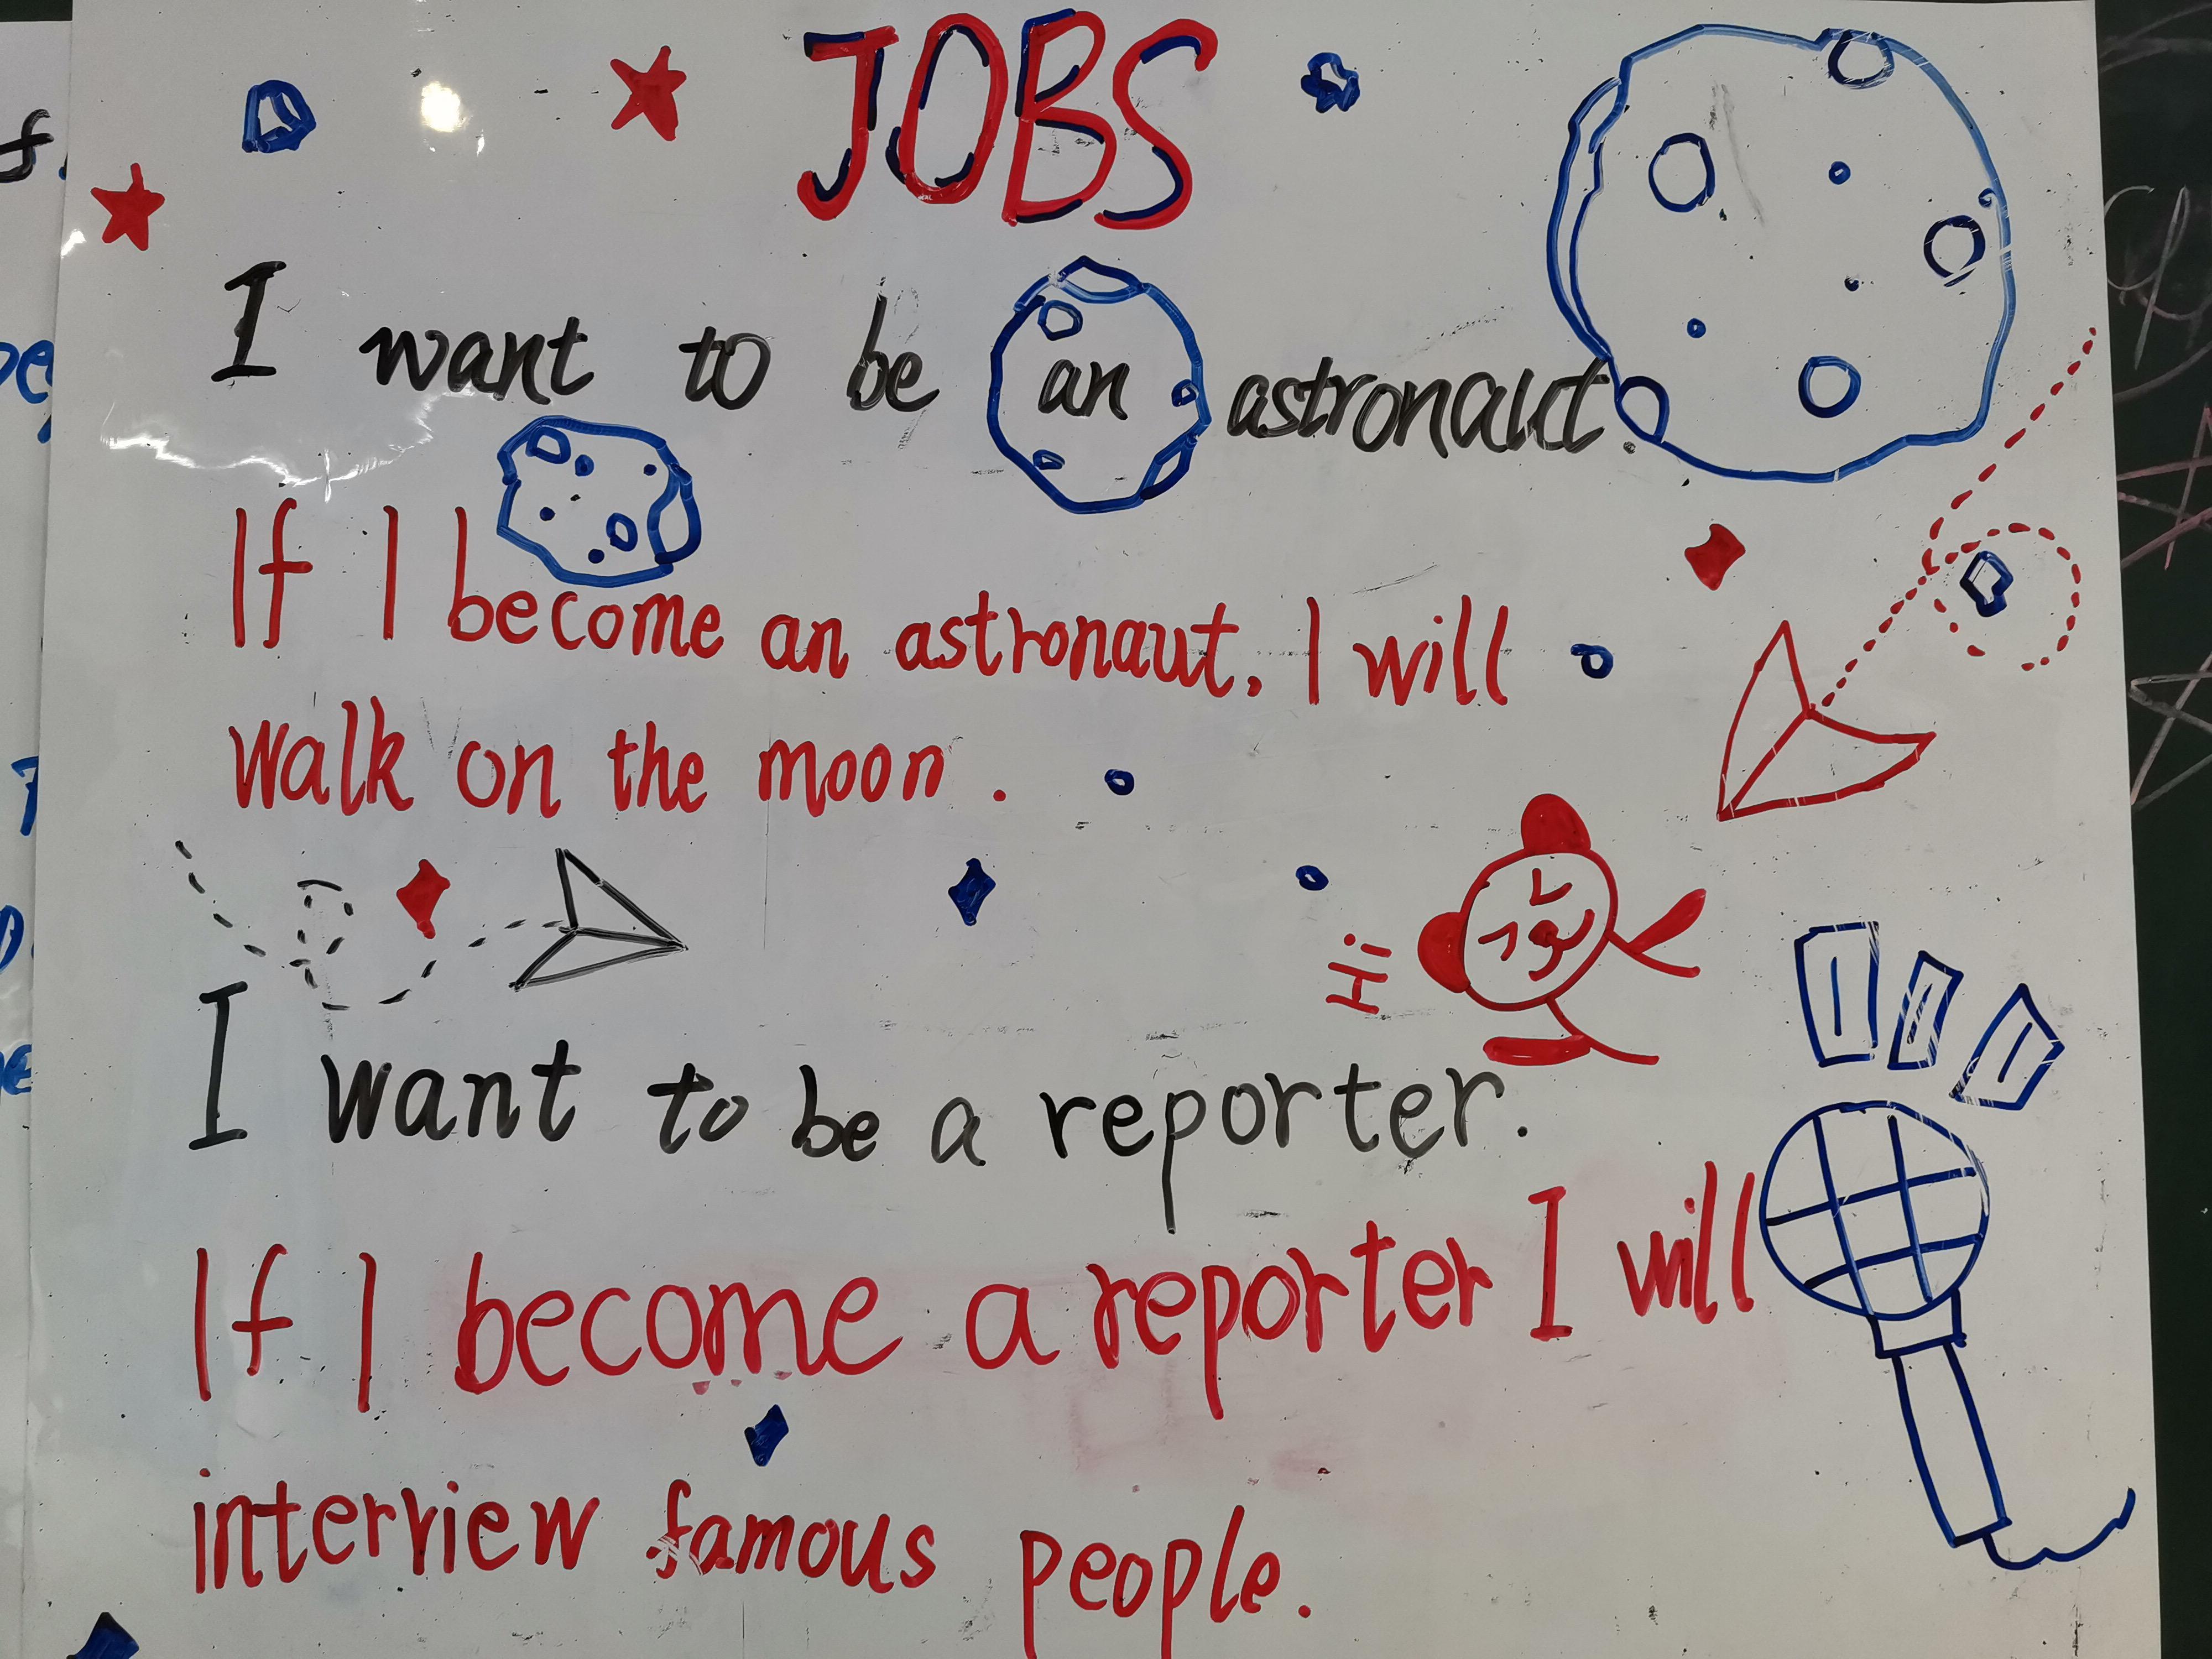 JOBS
I want to be an astronaut.
If I become an astronaut, I will
walk on the moon.
Hi
I want to be a reporter.
If I become a reporter I will
interview famous people.